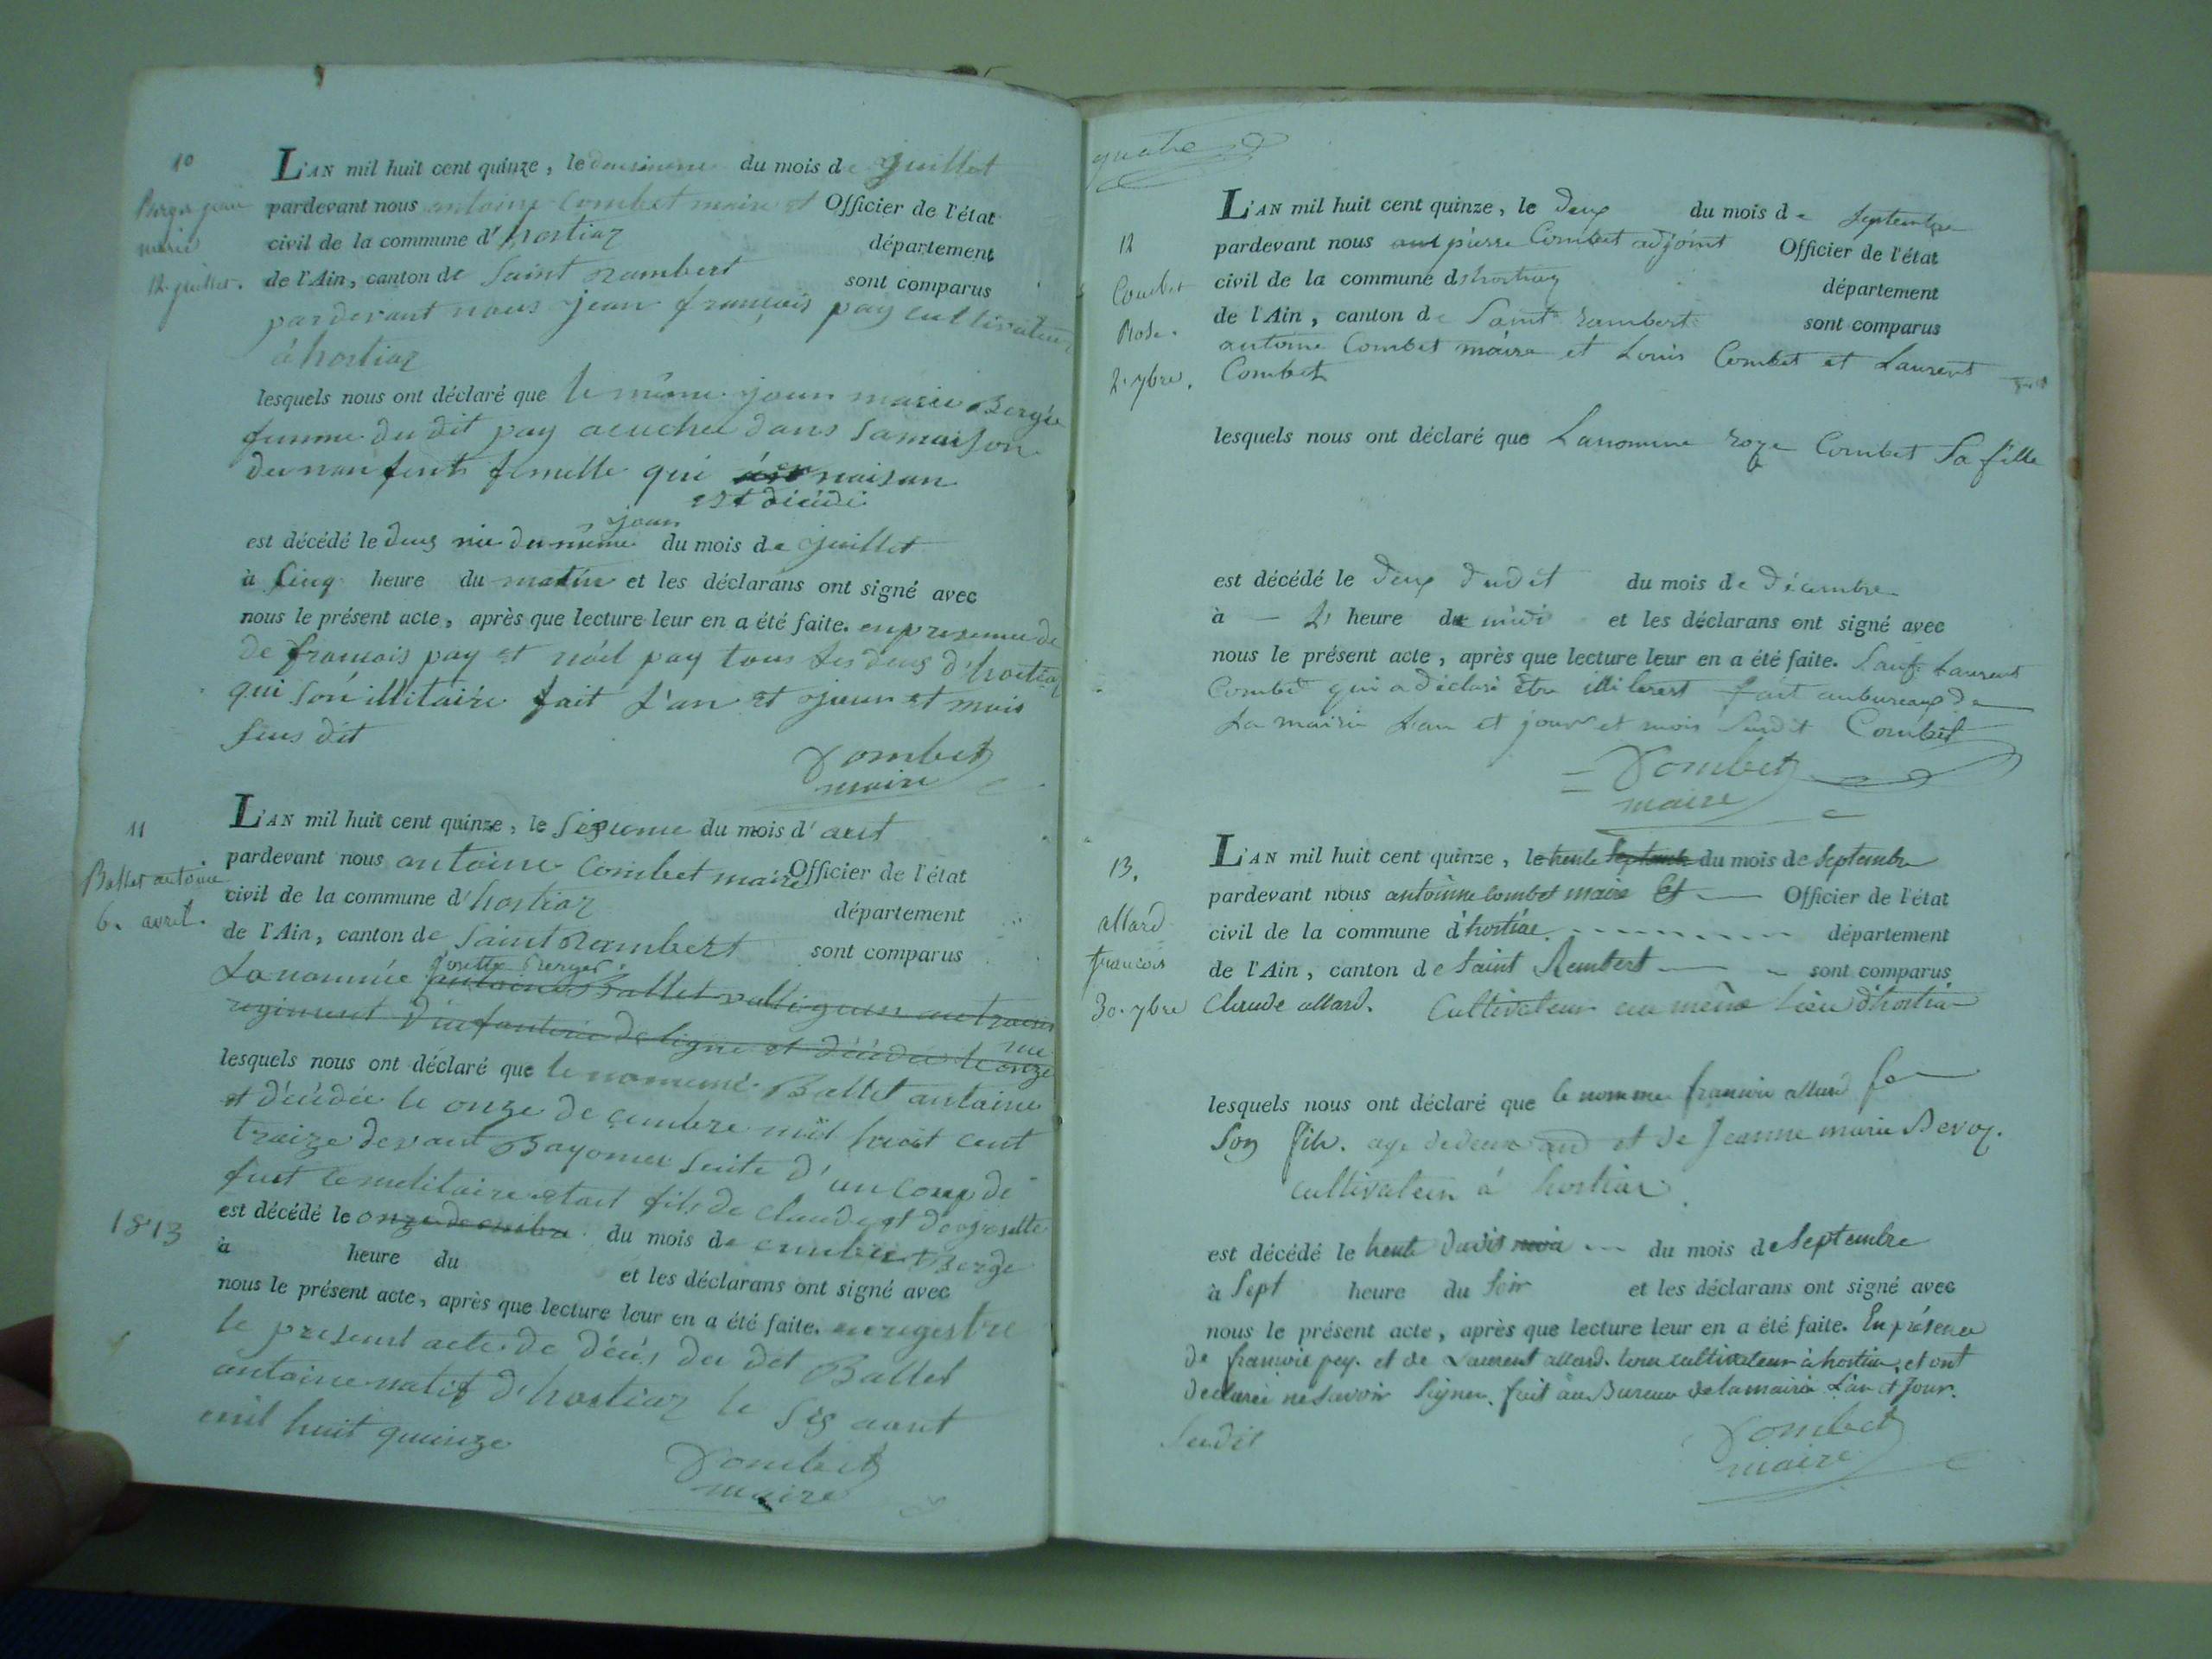 10
Berger jean
marie
12 juillet.
L'AN mil huit cent quinze, le dousieme du mois de juillet
pardevant nous antoine Combet maire et Officier de l'état
civil de la commune d'hostiaz département
de l'Ain, canton de Saint rambert sont comparus
pardevant nous jean françois pay cultivateur
à hostiaz
lesquels nous ont déclaré que le même jour marie Bergée
femme du dit pay acuchée dans sa maison
qui naisan
est décédé
jour
est décédé le du même du mois de juillet
à Cinq heure du matin et les déclarans ont signé avec
nous le présent acte, après que lecture leur en a été faite. en presemce de
de francois pay et noël pay tous les deus d'hostiaz
qui son illitaire fait l'an et jour et mois
sus dit
Combet
maire
11
Ballet antoine
6. avril.
1813
L'AN mil huit cent quinze, le du mois d'aut
pardevant nous antoine Combet maire Officier de l'état
civil de la commune d'hostiaz département
de l'Ain, canton de Saint Rambert sont comparus
La nommée josette Berger
antoine Ballet
regiment d'infanterie de ligne et décédée le onze
lesquels nous ont déclaré que le nommé Ballet antoine
et décédée le onze decembre mil huit cent
traize devant Bayonne suite d'un coup de
fust le militaire etait fils de Claude et de josette
est décédé le onze decembre du mois de cembre Berge
à heure du et les déclarans ont signé avec
nous le présent acte, après que lecture leur en a été faite. enregistre
le present acte de décès du dit Ballet
antoine natif d'hostiaz le sis aout
mil huit quinze
Combet
maire
quatre
12
Combet
Rose.
2. 7bre.
L'AN mil huit cent quinze, le deux du mois de septembre
pardevant nous pierre Combet adjoint Officier de l'état
civil de la commune d'hostiaz département
de l'Ain, canton de Saint rambert sont comparus
antoine Combet maire et Louis Combet et Laurent
Combet
lesquels nous ont déclaré que La nomme roze Combet Sa fille
est décédé le deux dudit du mois de décembre
à 2 heure de midi et les déclarans ont signé avec
nous le présent acte, après que lecture leur en a été faite. Sauf Laurent
Combet qui a déclaré être fait au bureaux de
La mairie L'an et jour et mois susdit Combet
Combet
maire
13.
allard
francois
30. 7bre
L'AN mil huit cent quinze, le trente Septembre du mois de Septembre
pardevant nous antoinne combet maire Et Officier de l'état
civil de la commune d'hostiae département
de l'Ain, canton de Saint Rembert sont comparus
Claude allard. Cultivateur au même Lieu d'hostia
lesquels nous ont déclaré que le nomme francoi allard
Son fils. age de deux and et de Jeanne marie Devoz.
cultivateur à hostiaz
est décédé le trente dudit mois du mois de Septembre
à Sept heure du Soir et les déclarans ont signé avec
nous le présent acte, après que lecture leur en a été faite. En présence
de francoi pey. et de Laurent allard. tous cultivateur à hostia, et ont
declarée ne savoir Signer. fait au Bureau de la mairie L'an et Jour.
Sudit
Combet
maire